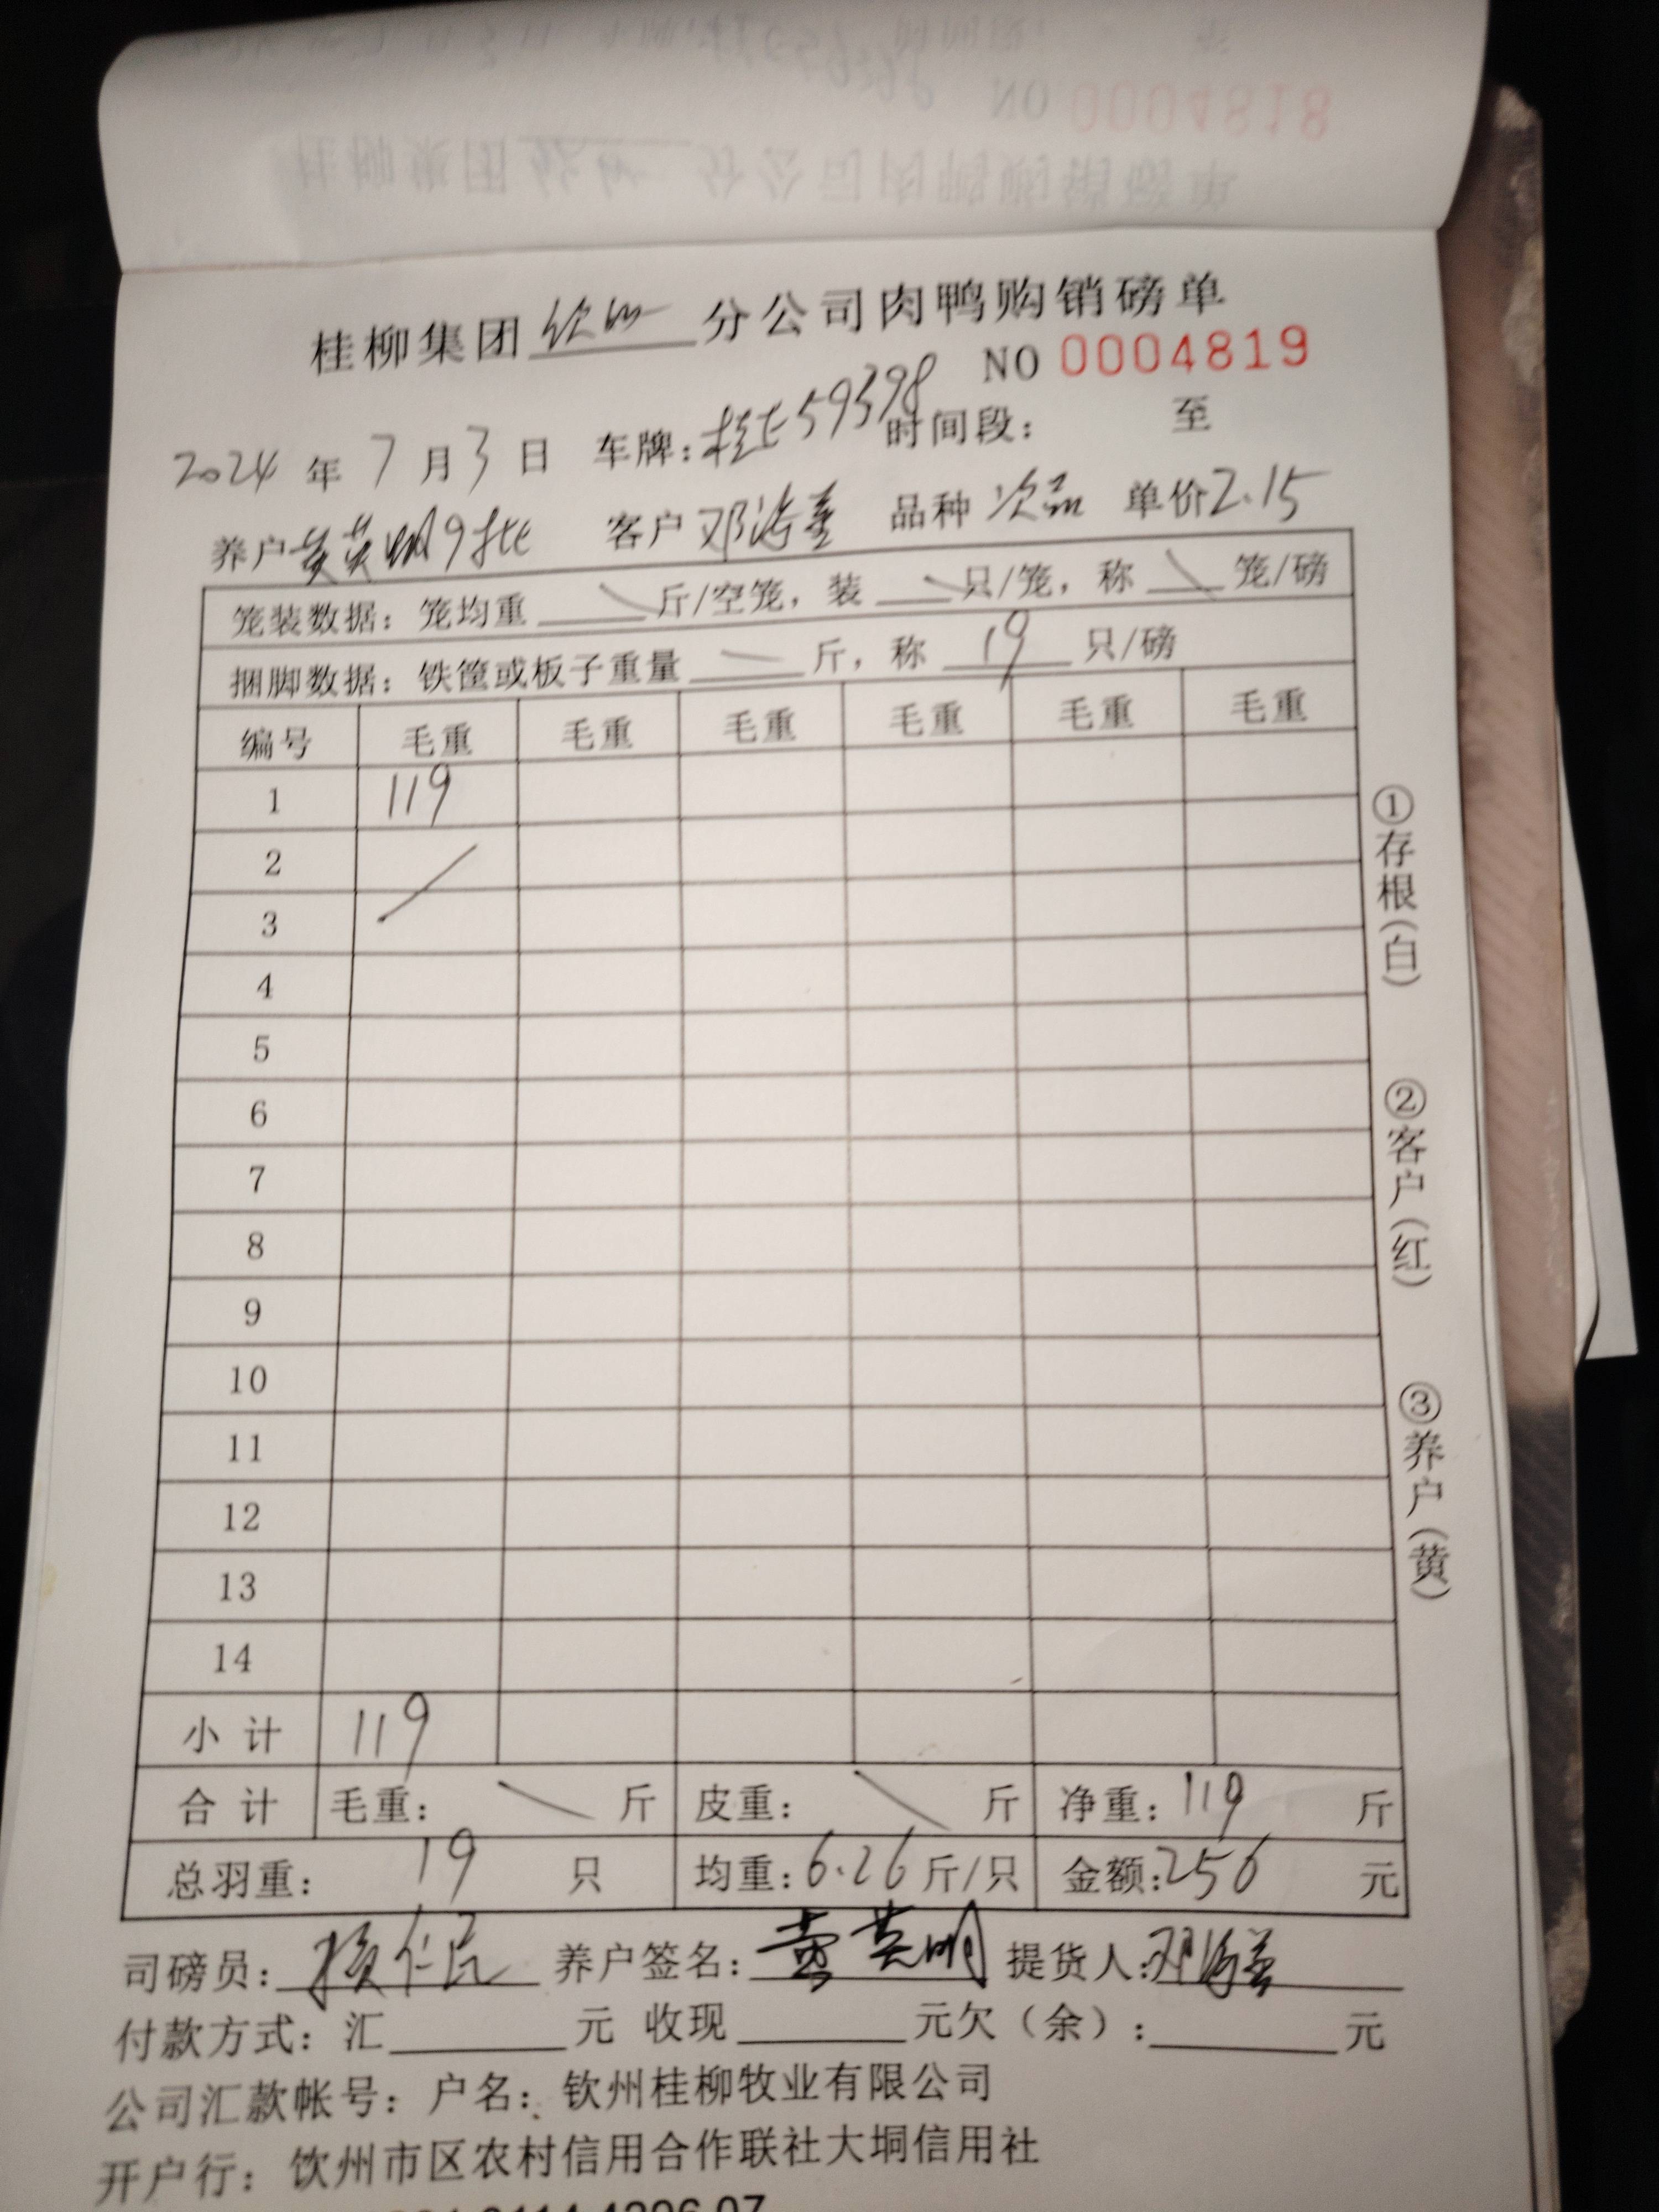 桂柳集团钦州分公司肉鸭购销磅单
NO 0004819
2024年7月3日 车牌:桂E59398 时间段: 至
养户黄英明9批 客户邓海 品种次品 单价2.15
笼装数据：笼均重 斤/空笼，装 只/笼，称 笼/磅
捆脚数据：铁筐或板子重量 斤，称 19 只/磅
编号 毛重 毛重 毛重 毛重 毛重 毛重
1 119
2
3
4
5
6
7
8
9
10
11
12
13
14
小计 119
合计 毛重: 斤 皮重: 斤 净重: 119 斤
总羽重: 19 只 均重:6.26斤/只 金额:256 元
司磅员: 养户签名:黄英明 提货人:邓海
付款方式：汇 元 收现 元欠（余）: 元
公司汇款帐号：户名：钦州桂柳牧业有限公司
开户行：钦州市区农村信用合作联社大垌信用社
①存根(白) ②客户(红) ③养户(黄)
NO 0004818